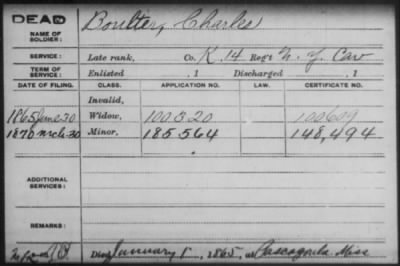 DEAD
NAME OF SOLDIER: Boulter, Charles
SERVICE: Late rank, Co. K, 14 Reg't N. Y. Cav
TERM OF SERVICE: Enlisted , 1 Discharged , 1
DATE OF FILING. CLASS. APPLICATION NO. LAW. CERTIFICATE NO.
Invalid,
1865 June 30 Widow, 100820 100609
1870 Mch 30 Minor, 185564 148,494
ADDITIONAL SERVICES:
REMARKS:
Died January 1, 1865, at Pascagoula Miss